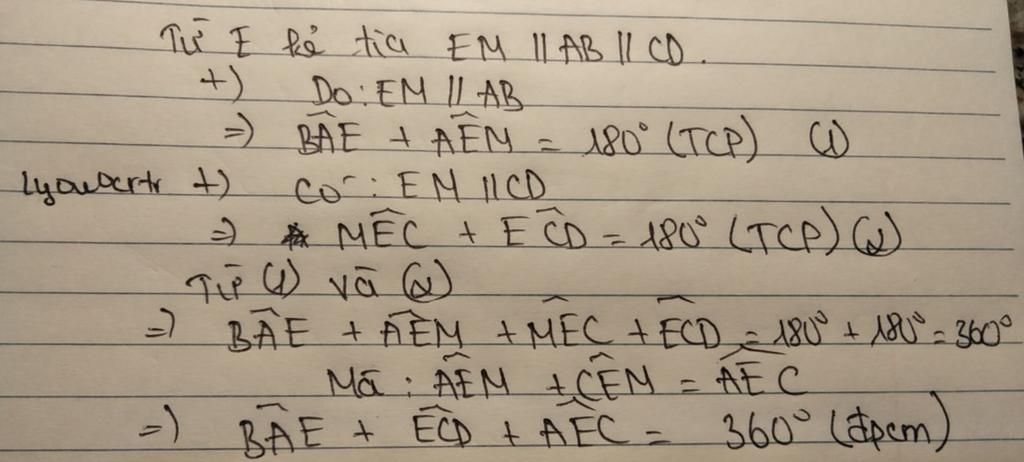 Từ E kẻ tia EM // AB // CD.
+) Do: EM // AB
=) BÂE + AÊM = 180° (TCP) (1)
+) Có: EM // CD
=) MÊC + EĈD = 180° (TCP) (2)
Từ (1) và (2)
=) BÂE + AÊM + MÊC + EĈD = 180° + 180° = 360°
Mà: AÊM + CÊM = AÊC
=) BÂE + EĈD + AÊC = 360° (đpcm)